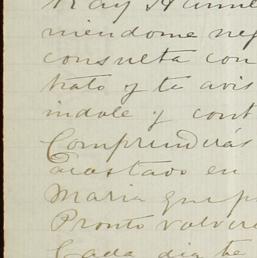 niendome
consulta con
trato y te avis
indole y cont
Comprenderás
en
Maria que p
Pronto volver
Cada dia te